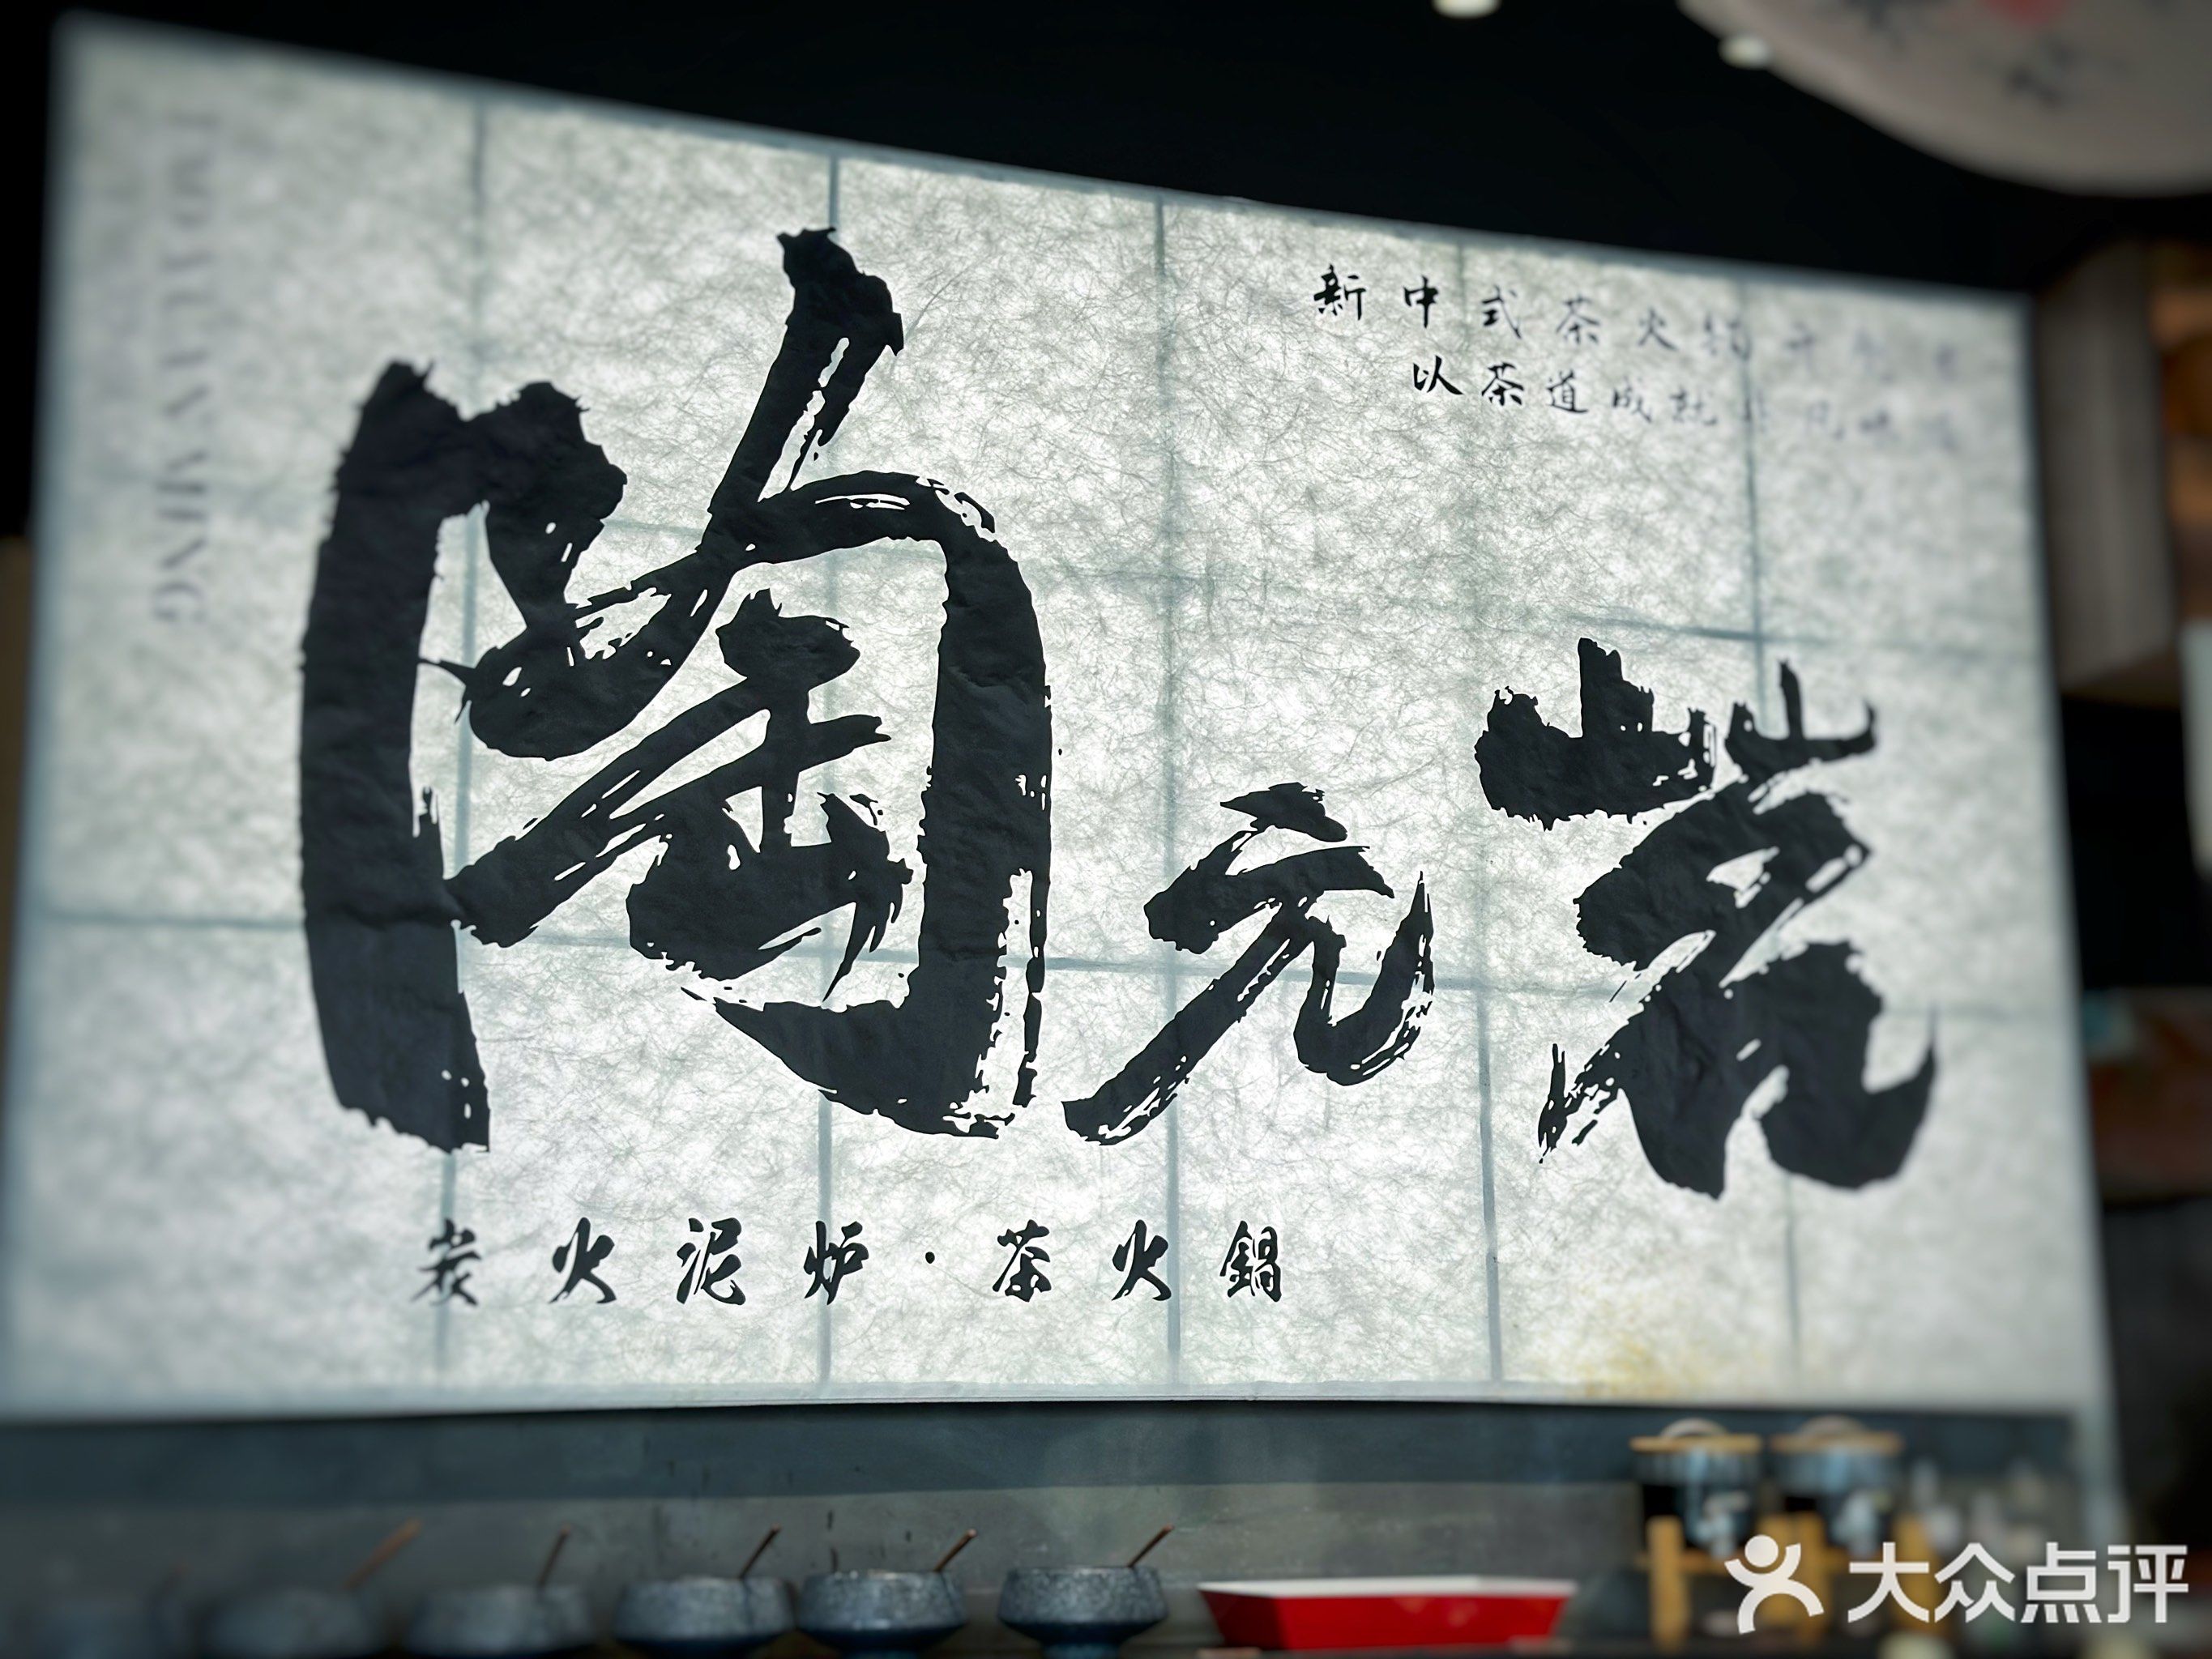 新中式茶火锅开创
以茶道成就
陶元茗
炭火泥炉·茶火鍋
YUAN MING
大众点评